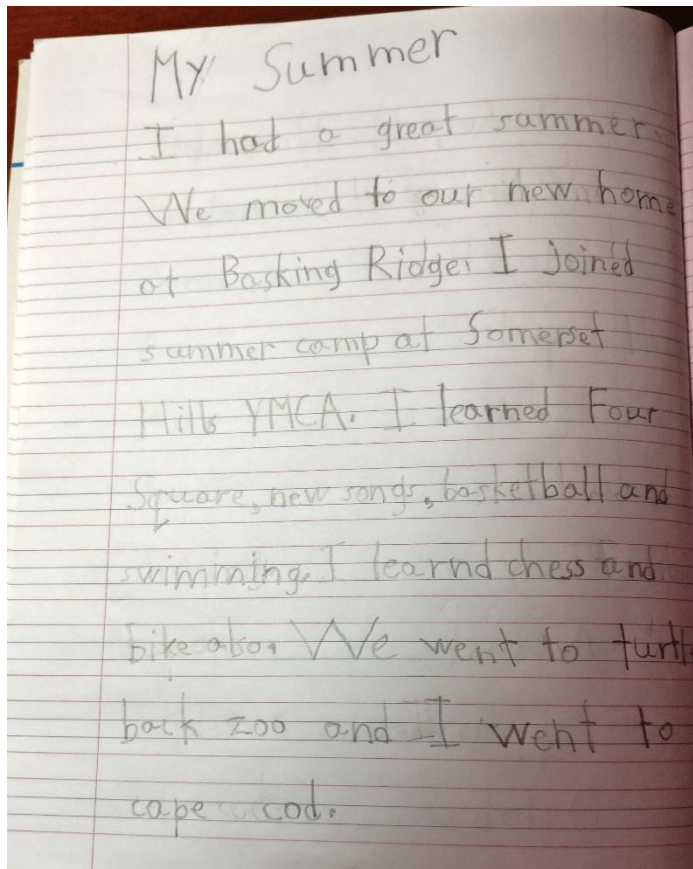 My Summer
I had a great summer.
We moved to our new home
at Basking Ridge. I joined
summer camp at Somerset
Hills YMCA. I learned Four
Square, new songs, basketball and
swimming. I learnd chess and
bike also. We went to turtl
back zoo and I went to
cape cod.